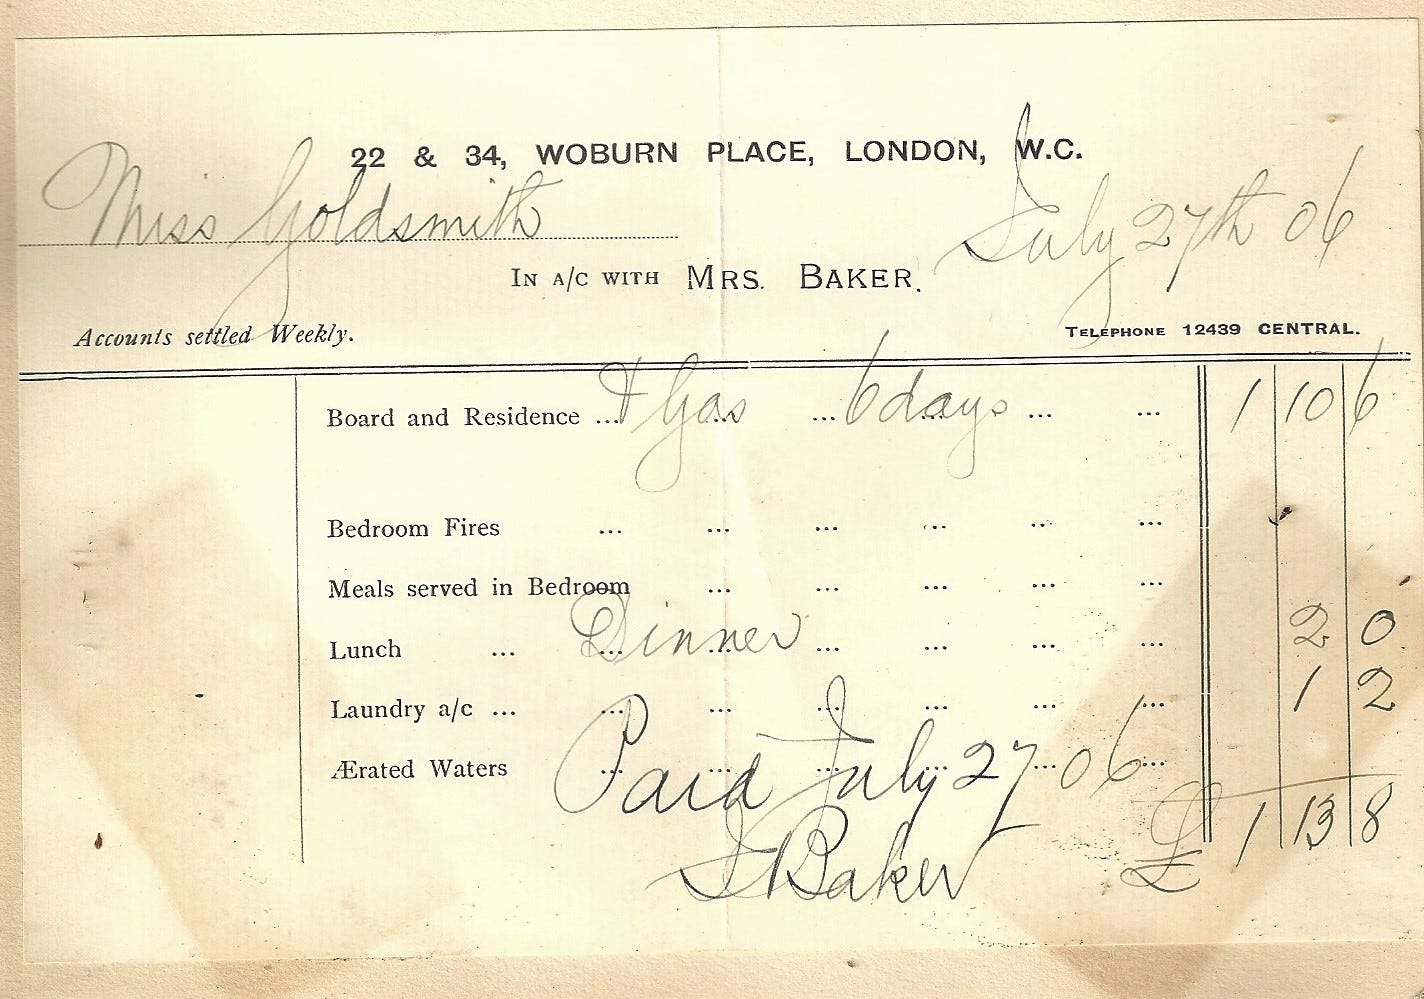 22 & 34, WOBURN PLACE, LONDON, W.C.
Miss Goldsmith July 27th 06
IN A/C WITH MRS. BAKER.
Accounts settled Weekly. TELEPHONE 12439 CENTRAL.
Board and Residence ... & Gas ... 6 days ... ... 1 10 6
Bedroom Fires ... ... ... ... ... ...
Meals served in Bedroom ... ... ... ... ...
Lunch ... Dinner ... ... ... ... 2 0
Laundry a/c ... ... ... ... ... ... ... 1 2
Ærated Waters ... ... ... ... ... ...
Paid July 27 06
£ 1 13 8
J Baker